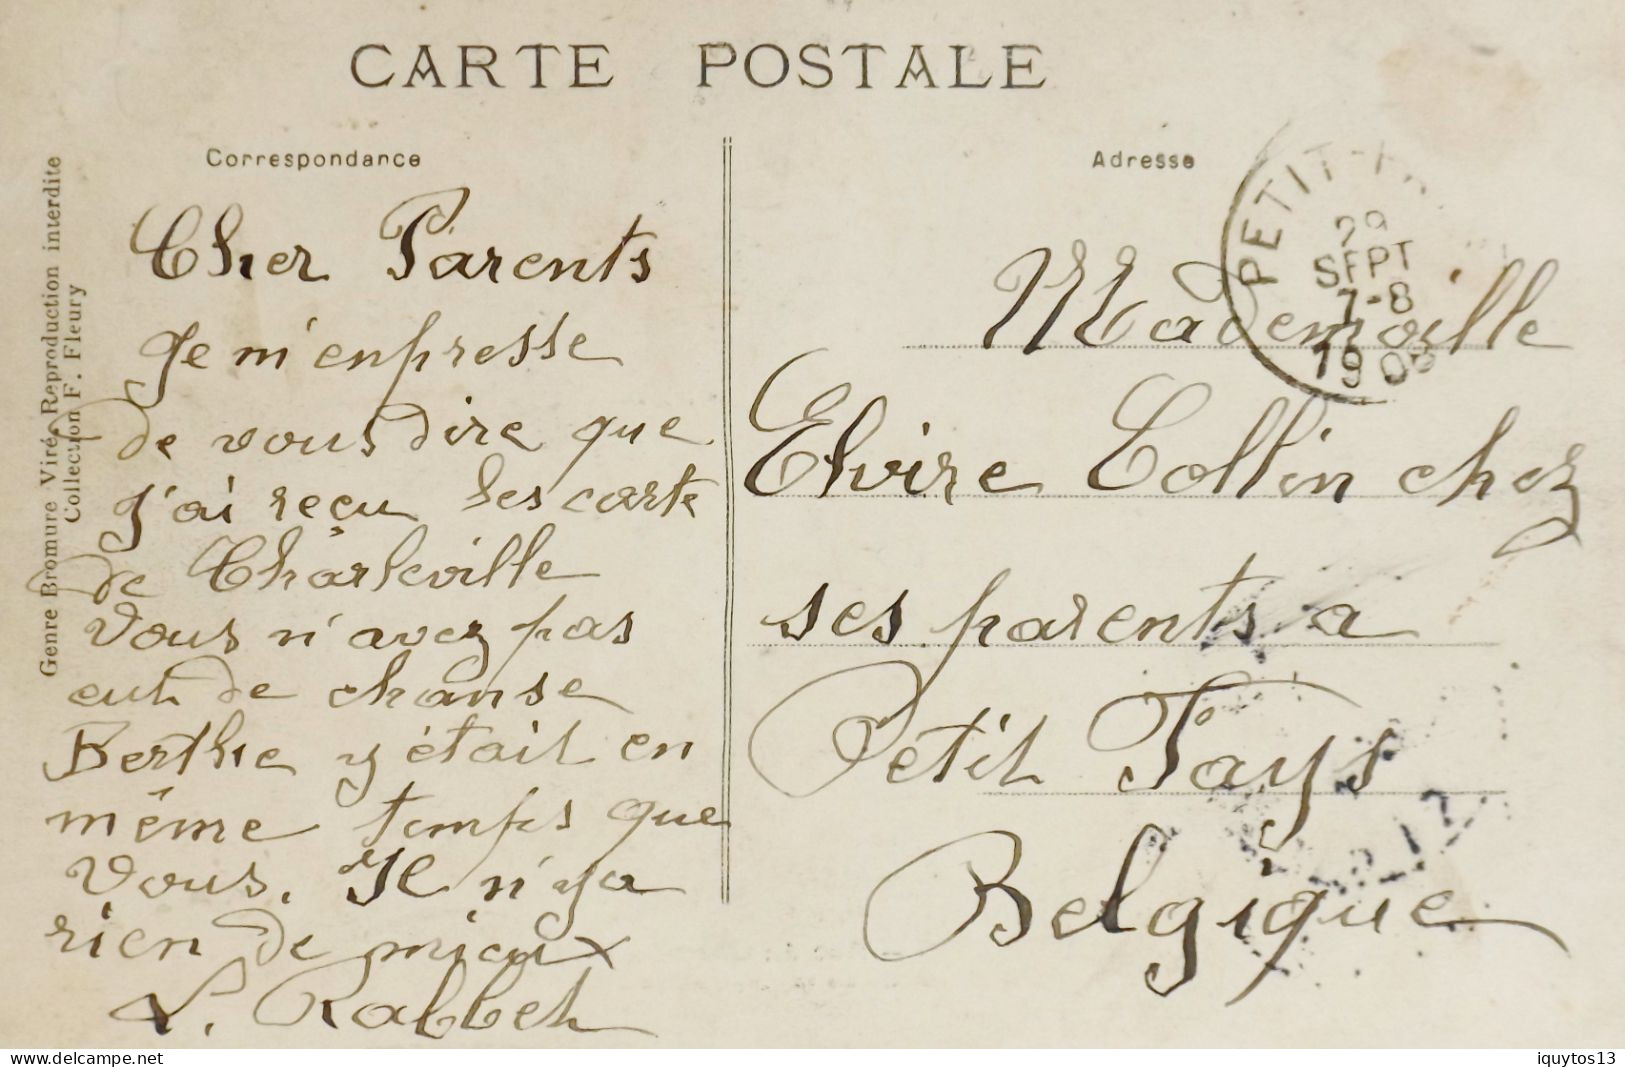 CARTE POSTALE
Correspondance
Cher Parents
Je m'enpresse
de vous dire que
j'ai reçu les carte
de Charleville
Vous n'avez pas
eut de chanse
Berthe y était en
même temps que
Vous. Il n'y a
rien de mieux
L. Rabbeh
Adresse
Mademoiselle
Elvire Collin chez
ses parents a
Petit Fays
Belgique
PETIT-F
29
SEPT
7-8
190
Genre Bromure Viré, Reproduction interdite
Collection F. Fleury
www.delcampe.net
iquytos13